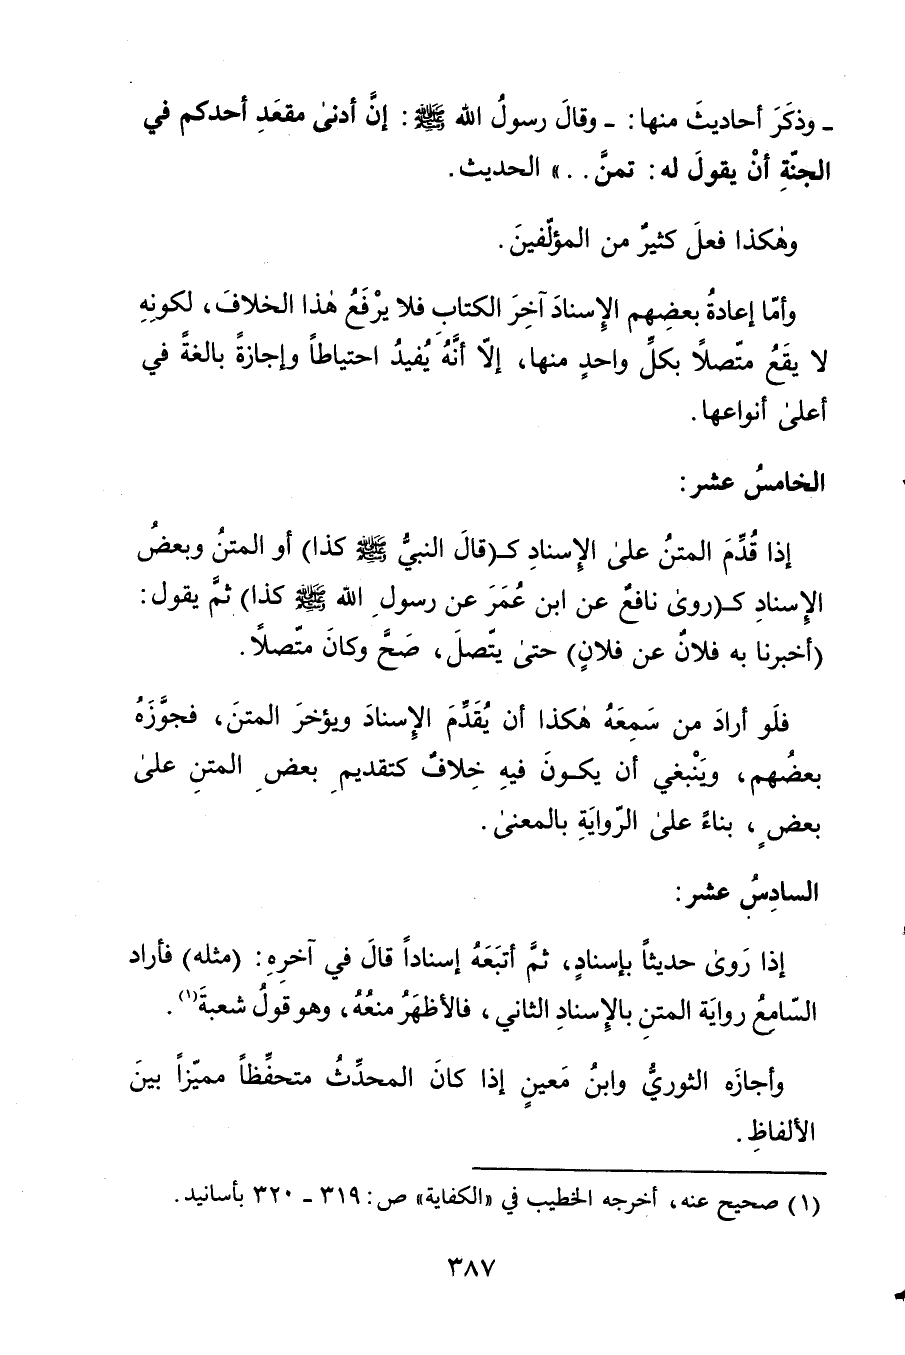 ـ وذكَرَ أحاديثَ منها: ـ وقالَ رسولُ الله ﷺ: إنَّ أدنىٰ مقعَدِ أحدكم في
الجنّةِ أنْ يقولَ له: تمنَّ. . .» الحديث.
وهٰكذا فعلَ كثيرٌ من المؤلّفينَ.
وأمّا إعادةُ بعضِهم الإِسنادَ آخِرَ الكتابِ فلا يرْفَعُ هٰذا الخلافَ، لكونِهِ
لا يقَعُ متّصلًا بكلِّ واحدٍ منها، إلّا أنَّهُ يُفيدُ احتياطاً وإجازةً بالغةً في
أعلىٰ أنواعها.
الخامسُ عشر:
إذا قُدِّمَ المتنُ علىٰ الإِسنادِ كـ(قالَ النبيُّ ﷺ كذا) أو المتنُ وبعضُ
الإِسنادِ كـ(روىٰ نافعٌ عن ابن عُمَرَ عن رسولِ الله ﷺ كذا) ثمَّ يقول:
(أخبرنا به فلانٌ عن فلانٍ) حتىٰ يتّصلَ، صَحَّ وكانَ متّصلًا.
فلَو أرادَ من سَمِعَهُ هٰكذا أن يُقَدِّمَ الإِسنادَ ويؤخرَ المتنَ، فجوَّزَهُ
بعضُهم، ويَنْبغي أن يكـونَ فيهِ خِلافٌ كتقديمِ بعضِ المتنِ علىٰ
بعضٍ، بناءً علىٰ الرّوايَةِ بالمعنىٰ.
السادِسُ عشر:
إذا رَوىٰ حديثاً بإسنادٍ، ثمَّ أتبَعَهُ إسناداً قالَ في آخرِهِ: (مثله) فأراد
السّامِعُ روايَة المتنِ بالإِسنادِ الثاني، فالأظهَرُ منعُهُ، وهو قولُ شعبةَ(١).
وأجازَه الثوريُّ وابنُ مَعينٍ إذا كانَ المحدِّثُ متحفِّظاً مميّزاً بينَ
الألفاظِ.
(١) صحيح عنه، أخرجه الخطيب في «الكفاية» ص: ٣١٩ ـ ٣٢٠ بأسانيد.
٣٨٧